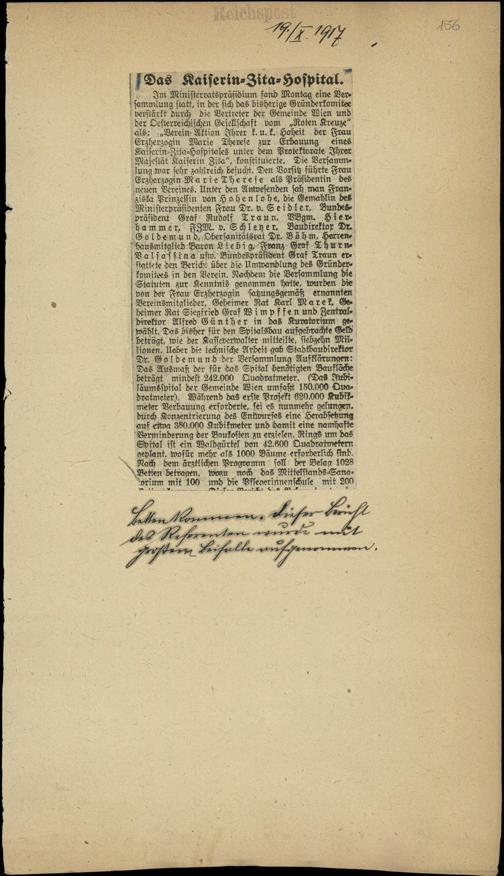 Reichspost
19./X. 1917
156
Das Kaiserin-Zita-Hospital.
Im Ministerratspräsidium fand Montag eine Ver-
sammlung statt, in der sich das bisherige Gründerkomitee
verstärkt durch die Vertreter der Gemeinde Wien und
der Oesterreichischen Gesellschaft vom „Roten Kreuze"
als: „Verein Aktion Ihrer k. u. k. Hoheit der Frau
Erzherzogin Marie Therese zur Erbauung eines
Kaiserin-Zita-Hospitales unter dem Protektorate Ihrer
Majestät Kaiserin Zita", konstituierte. Die Versamm-
lung war sehr zahlreich besucht. Den Vorsitz führte Frau
Erzherzogin Marie Therese als Präsidentin des
neuen Vereines. Unter den Anwesenden sah man Fran-
ziska Prinzessin von Hohenlohe, die Gemahlin des
Ministerpräsidenten Frau Dr. v. Seidler, Bundes-
präsident Graf Rudolf Traun, VBgm. Hier-
hammer, FZM. v. Schleyer, Baudirektor Dr.
Goldemund, Obersanitätsrat Dr. Böhm, Herren-
hausmitglied Baron Liebig, Franz Graf Thurn-
Valsassina usw. Bundespräsident Graf Traun er-
stattete den Bericht über die Umwandlung des Gründer-
komitees in den Verein. Nachdem die Versammlung die
Statuten zur Kenntnis genommen hatte, wurden die
von der Frau Erzherzogin satzungsgemäß ernannten
Vereinsmitglieder, Geheimer Rat Karl Marek, Ge-
heimer Rat Siegfried Graf Wimpffen und Zentral-
direktor Alfred Günther in das Kuratorium ge-
wählt. Das bisher für den Spitalsbau aufgebrachte Geld
beträgt, wie der Kassenverwalter mitteilte, siebzehn Mil-
lionen. Ueber die technische Arbeit gab Stadtbaudirektor
Dr. Goldemund der Versammlung Aufklärungen:
Das Ausmaß der für das Spital benötigten Baufläche
beträgt mindest 242.000 Quadratmeter. (Das Jubi-
läumsspital der Gemeinde Wien umfaßt 150.000 Qua-
dratmeter). Während das erste Projekt 620.000 Kubik-
meter Verbauung erforderte, sei es nunmehr gelungen,
durch Konzentrierung des Entwurfes eine Herabsetzung
auf etwa 380.000 Kubikmeter und damit eine namhafte
Verminderung der Baukosten zu erzielen. Rings um das
Spital ist ein Waldgürtel von 42.600 Quadratmetern
geplant, wofür mehr als 1000 Bäume erforderlich sind.
Nach dem ärztlichen Programm soll der Belag 1028
Betten betragen, wozu noch das Mittelstands-Sana-
torium mit 100 und die Pflegerinnenschule mit 200
Betten kommen. Dieser Bericht
des Referenten wurde mit
großem Beifalle aufgenommen.